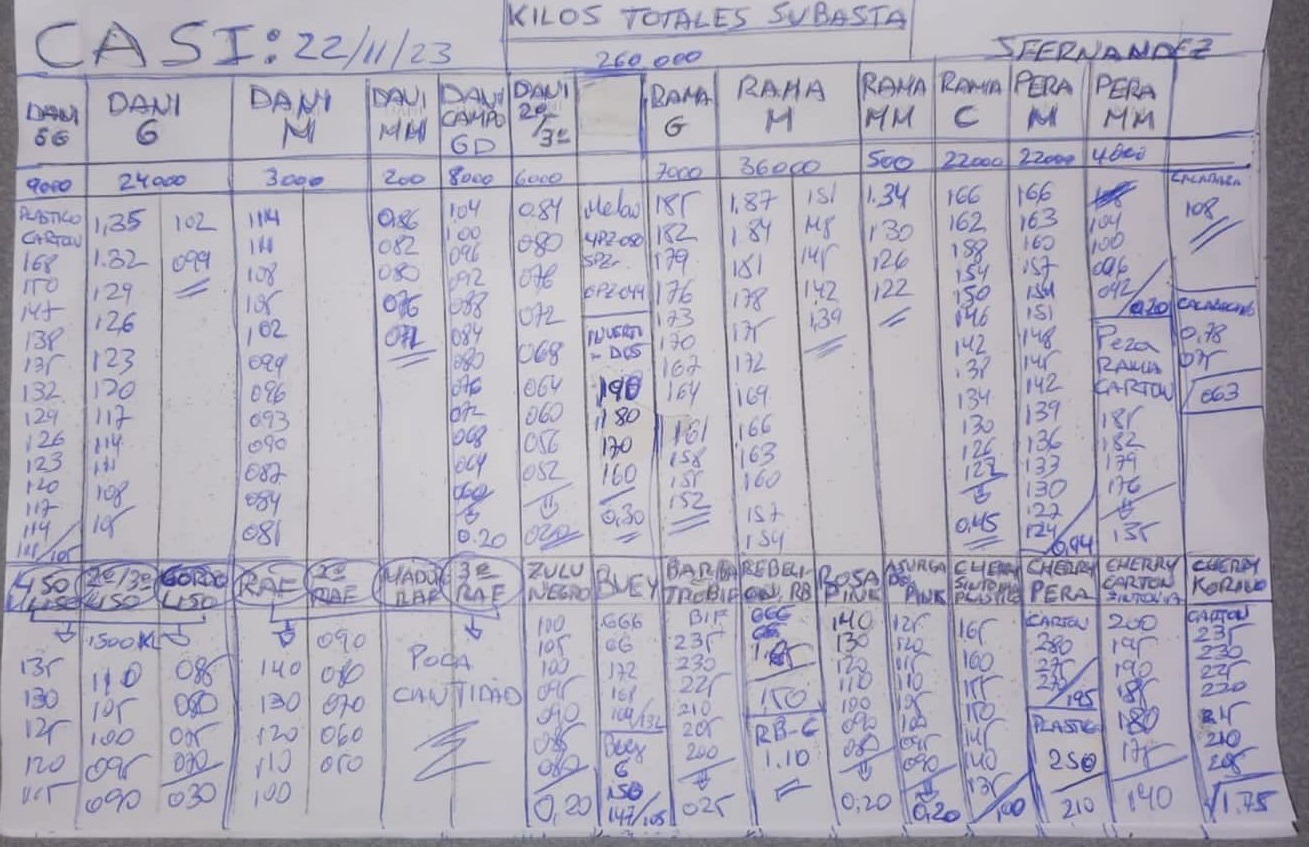 KILOS TOTALES SUBASTA
CASI: 22/11/23
260.000
SFERNANDEZ
DANI GG
DANI G
DANI M
DANI MM
DANI CAMPO GD
DANI 2ª/3ª
RAMA G
RAMA M
RAMA MM
RAMA C
PERA M
PERA MM
9000
24000
3000
200
8000
6000
7000
36000
500
22000
22000
PLASTICO
CARTON
168
150
147
138
135
132
129
126
123
120
117
114
111/105
1,35
1.32
129
126
123
120
117
114
111
108
105
102
099
114
111
108
105
102
099
096
093
090
087
084
081
086
082
080
076
072
104
100
096
092
088
084
080
076
072
068
064
060
0.20
0.84
080
076
072
068
064
060
056
052
020
Melon
190
180
170
160
0,30
185
182
179
176
173
170
167
164
161
158
155
152
1.87
1.84
181
178
175
172
169
166
163
160
157
154
151
148
145
142
1,39
1.34
130
126
122
166
162
158
154
150
146
142
138
134
130
126
122
0,45
166
163
160
157
154
151
148
145
142
139
136
133
130
127
124
0,94
104
100
096
092
0,20
Pera
RAMA
CARTON
185
182
179
176
135
CALABAZA
108
CALABACINES
0,78
075
063
450
2ª/3ª 450
GORDO 450
RAF
2ª RAF
MADURO RAF
3ª RAF
ZULU NEGRO
BUEY
REBELION, RB
ROSA PINK
ASURGADO PINK
CHERRY SINTONIA PLASTICO
CHERRY PERA
CHERRY CARTON SINTONIA
CHERRY KORINO
135
130
125
120
115
1500 KL
110
105
100
095
090
085
080
075
070
030
140
130
120
110
100
090
080
070
060
050
POCA
CANTIDAD
110
105
100
095
090
085
080
0,20
666
66
172
168
164/132
Buey
G
150
147/105
BIF
235
230
225
210
205
200
025
666
150
RB-G
1.10
140
130
120
110
100
090
080
0,20
125
120
115
110
105
100
095
090
0,20
165
160
155
150
145
140
135
100
CARTON
280
275
270
195
PLASTICO
250
210
200
195
190
185
180
175
140
CARTON
235
230
225
220
215
210
205
1.75